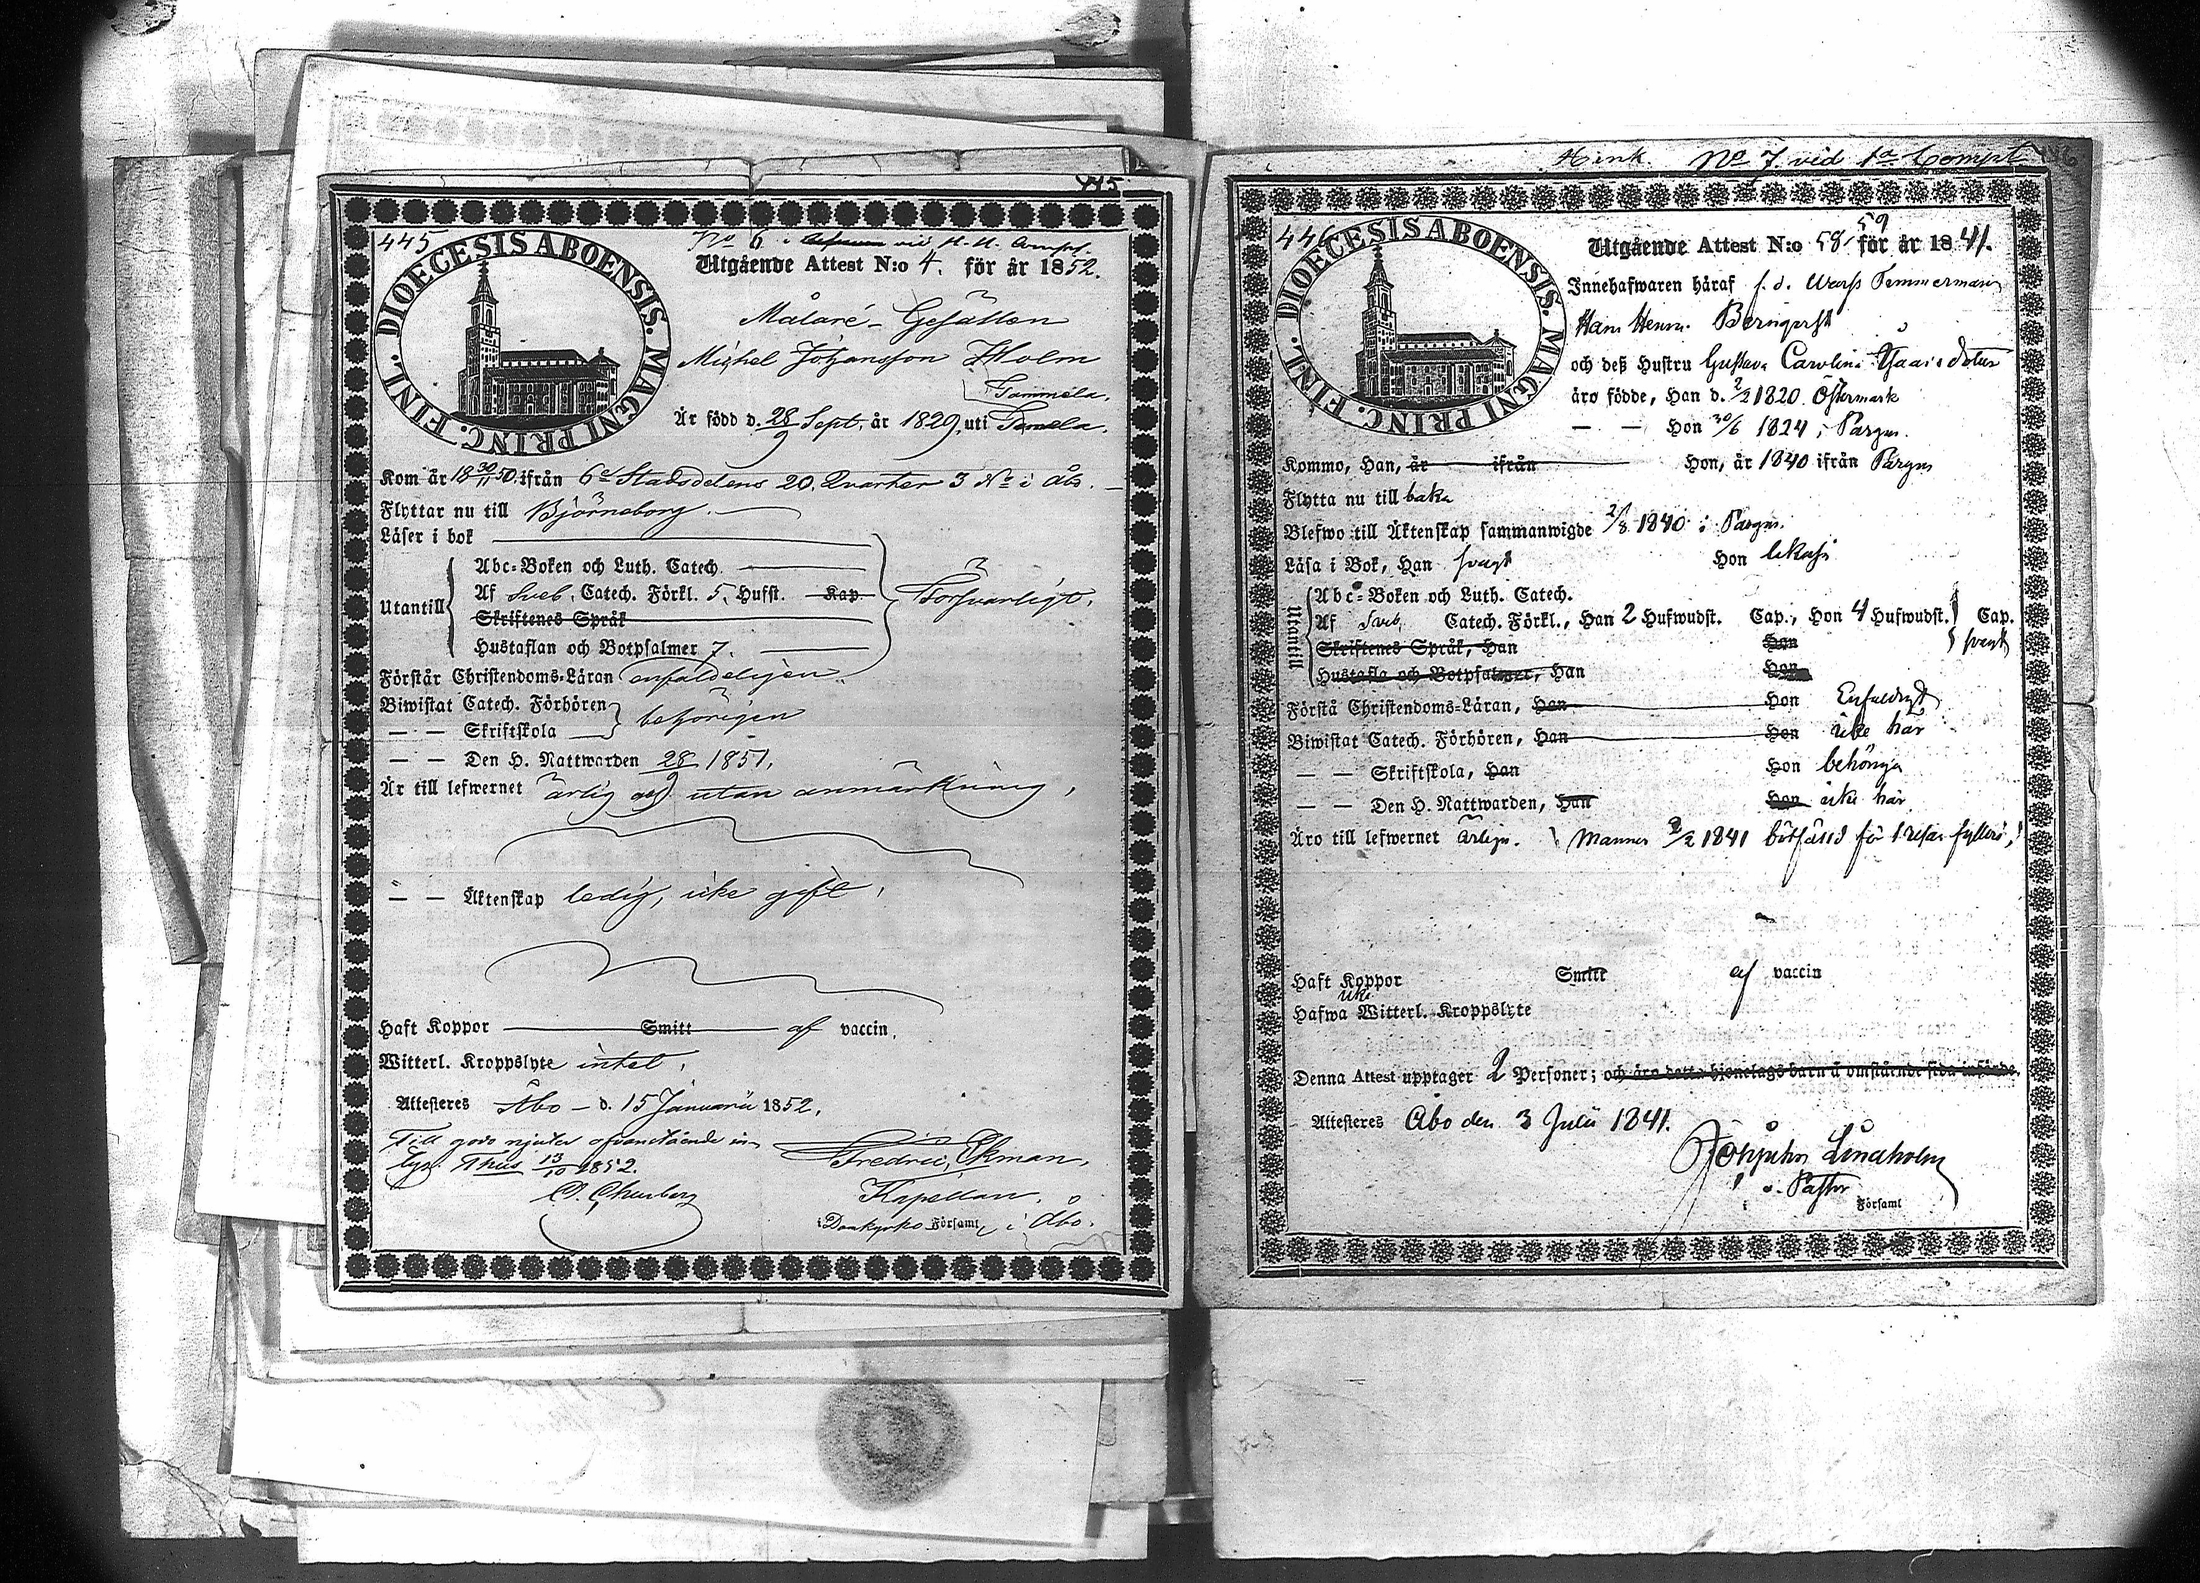 445
445
DIOECESIS ABOENSIS. MAGNI PRINC. FINL.
No 6 vid
Utgående Attest N:o 4. för år 1852.
Målare-Gesällen
Michel Johansson Holm
Tammela.
Är född d. 28/9 Sept. år 1829, uti
Kom år 18 30/11 50. ifrån 6e Stadsdelens 20. Quarter 3 No i Åbo.
Flyttar nu till Björneborg.
Läser i bok
Utantill
Abc-Boken och Luth. Catech.
Af Sveb. Catech. Förkl. 5, Hufst. Kap.
Försvarligt.
Skriftenes Språk
Hustaflan och Botpsalmer 7.
Förstår Christendoms-Läran enfaldeligen.
Biwistat Catech. Förhören
behörigen
— — Skriftskola
— — Den H. Nattwarden 28/9 1851.
Är till lefwernet ärlig och utan anmärkning,
— — Äktenskap ledig, icke gift,
Haft Koppor Smitt af vaccin.
Witterl. Kroppslyte intet,
Attesteres Åbo – d. 15 Januarii 1852.
Till godo njuter ofvanstående in-
1852.
Fredric Ekman,
Kapellan,
i Domkyrko Församl. i Åbo.
446
No 7 vid 1a Compt
446
DIOECESIS ABOENSIS. MAGNI PRINC. FINL.
59
Utgående Attest N:o 58 för år 1841.
Innehafwaren häraf f. d. Warfs Timmerman
Hans Henr.
och deß Hustru Gustava Carolina
äro födde, Han d. 2/2 1820 Östermark
— — Hon 30/6 1824 i Pargas.
Kommo, Han, år ifrån Hon, år 1840 ifrån Pargas
Flytta nu till baka
Blefwo till Äktenskap sammanwigde 2/8 1840 i Pargas.
Läsa i Bok, Han svagt Hon likaså
Utantill
Abc-Boken och Luth. Catech.
Af Sveb. Catech. Förkl., Han 2 Hufwudst. Cap., Hon 4 Hufwudst. Cap.
svagt
Skriftenes Språk, Han Hon
Hustafla och Botpsalmer, Han Hon
Förstå Christendoms-Läran, Han Hon Enfaldigt
Biwistat Catech. Förhören, Han Hon icke här
— — Skriftskola, Han Hon behöriga
— — Den H. Nattwarden, Han Hon icke här
Äro till lefwernet ärliga. Mannen 3/2 1841 bötfälld för 1 resan fylleri,
Haft Koppor Smitt af vaccin
icke
Hafwa Witterl. Kroppslyte
Denna Attest upptager 2 Personer; och äro detta hjonelags barn å omstående sida införde.
Attesteres Åbo den 3 Julii 1841.
Lindholm
v. Pastor
i Församl